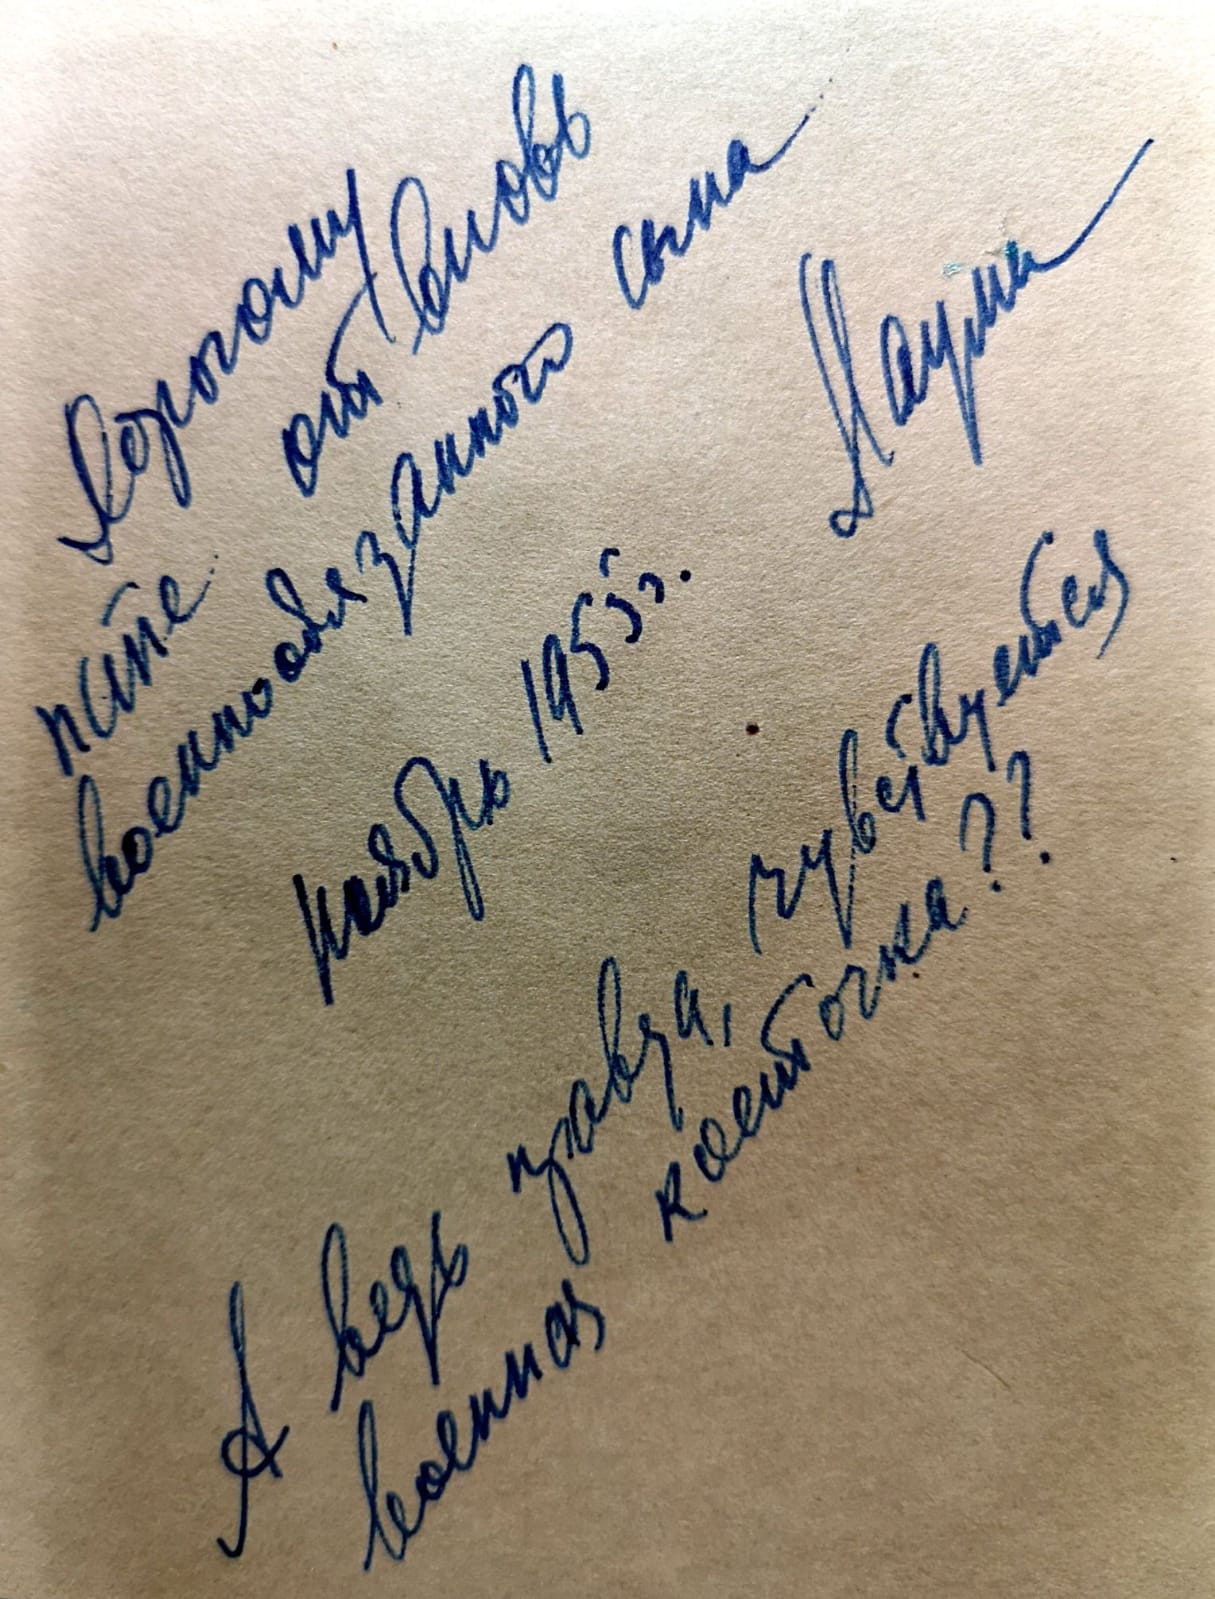 Дорогому
папе от вновь
военнообязанного сына
Наума
Ноябрь 1955г.
А ведь правда, чувствуется
военная косточка??